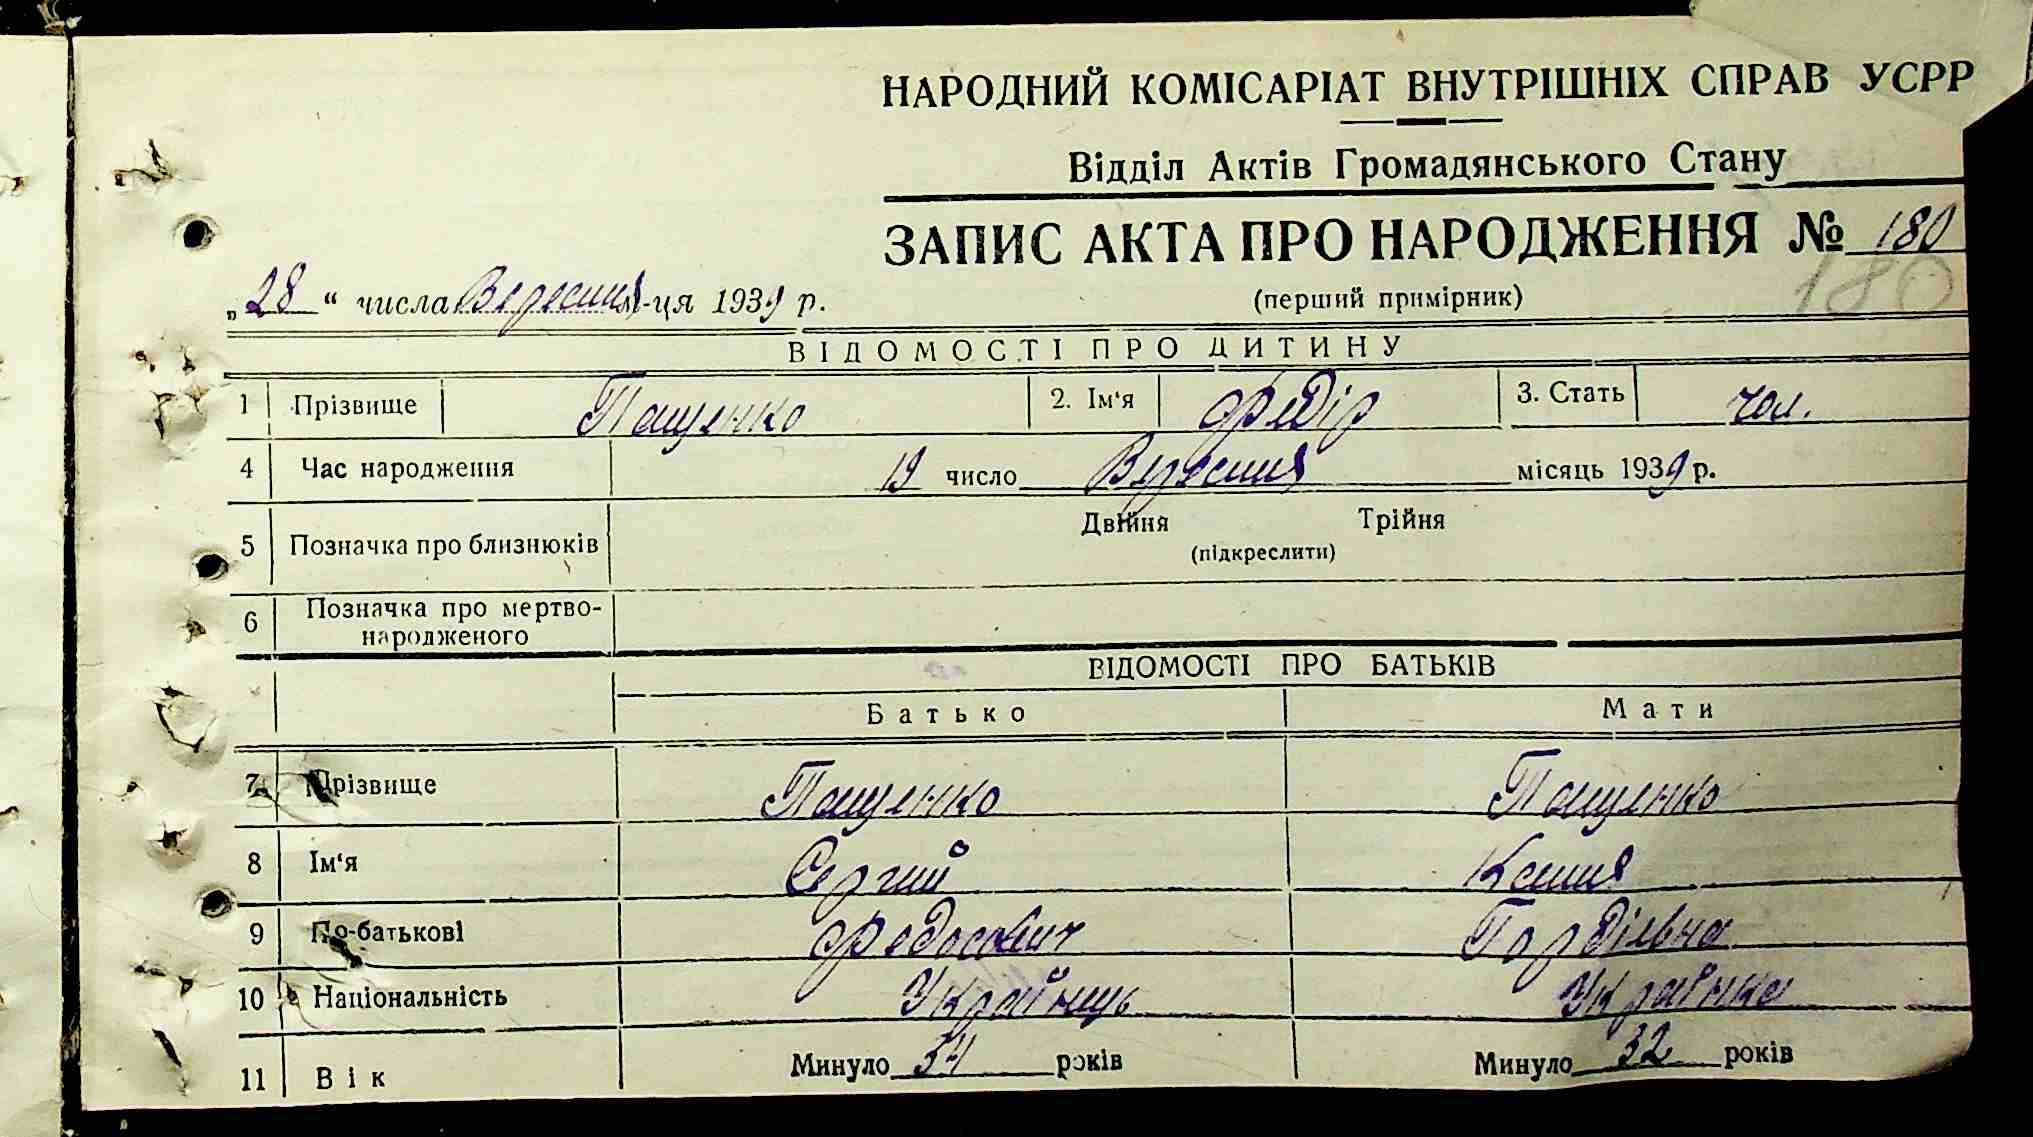 НАРОДНИЙ КОМІСАРІАТ ВНУТРІШНІХ СПРАВ УСРР
Відділ Актів Громадянського Стану
ЗАПИС АКТА ПРО НАРОДЖЕННЯ № 180
„28“ числа Вересня м-ця 1939 р.
(перший примірник) 180
ВІДОМОСТІ ПРО ДИТИНУ
1 Прізвище Пащенко 2. Ім'я Федір 3. Стать чол.
4 Час народження 19 число Вересня місяць 1939 р.
5 Позначка про близнюків Двійня Трійня
(підкреслити)
6 Позначка про мертво-
народженого
ВІДОМОСТІ ПРО БАТЬКІВ
Батько Мати
7 Прізвище Пащенко Пащенко
8 Ім'я Сергий Ксиня
9 По-батькові Федосович Гордіївна
10 Національність Українць Українка
11 Вік Минуло 34 років Минуло 32 років